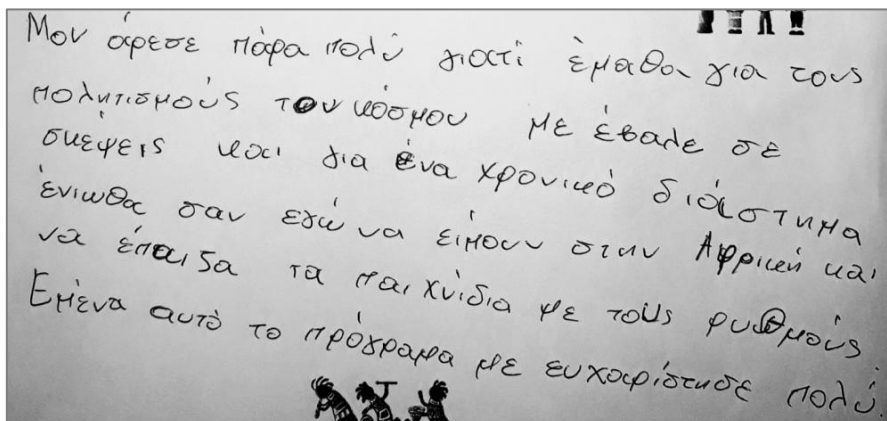 Μου άρεσε πάρα πολύ γιατί έμαθα για τους
πολητισμούς του κόσμου με έβαλε σε
σκέψεις και για ένα χρονικό διάστημα
ένιωθα σαν εγώ να είμουν στην Αφρική και
να έπαιζα τα παιχνίδια με τους ρυθμούς
Εμένα αυτό το πρόγραμα με ευχαρίστησε πολύ.